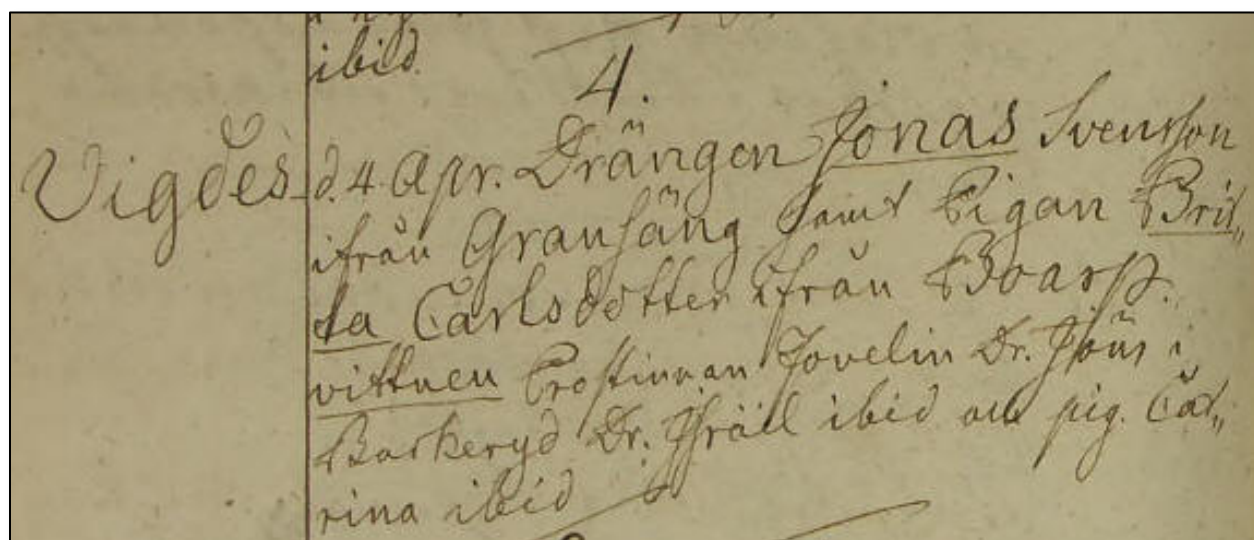 ibid.
4.
Vigdes d. 4 Apr. Drängen Jonas Svensson
ifrån Gransäng samt Pigan Brit,,
ta Carlsdotter ifrån Boarp.
vittnen Prostinnan Jovelin Dr. Jöns i
Barkeryd Dr. Israel ibid och pig. Cat,,
rina ibid